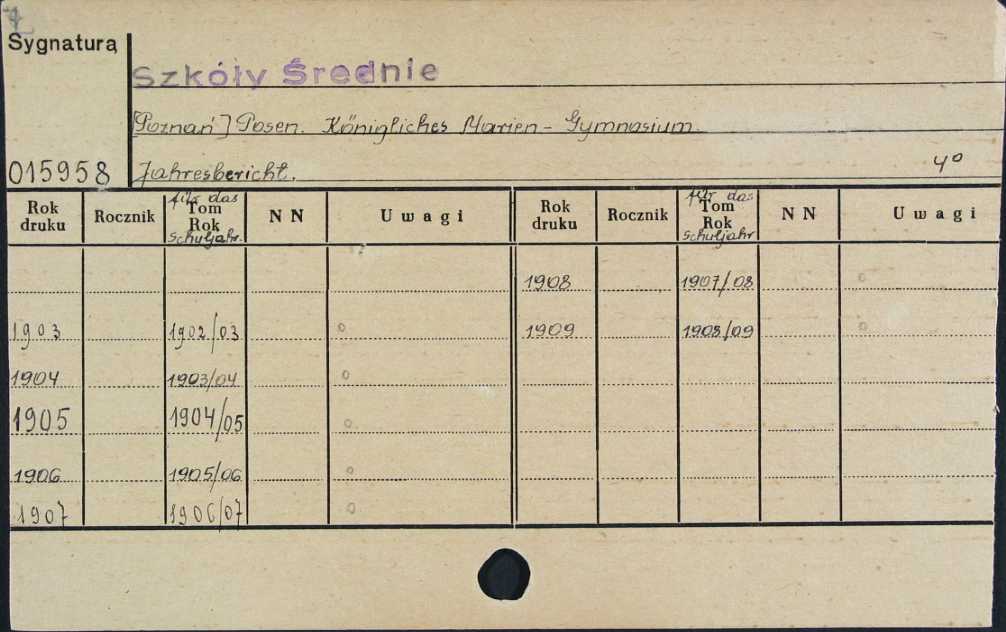 Sygnatura
Szkóły Średnie
[Poznań] Posen. Königliches Marien-Gymnasium.
015958 Jahresbericht. 4°
Rok druku Rocznik für das Tom Rok Schuljahr. N N Uwagi Rok druku Rocznik für das Tom Rok Schuljahr N N Uwagi
1908 1907/08 o
1903 1902/03 o 1909 1908/09 o
1904 1903/04 o
1905 1904/05 o
1906 1905/06 o
1907 1906/07 o